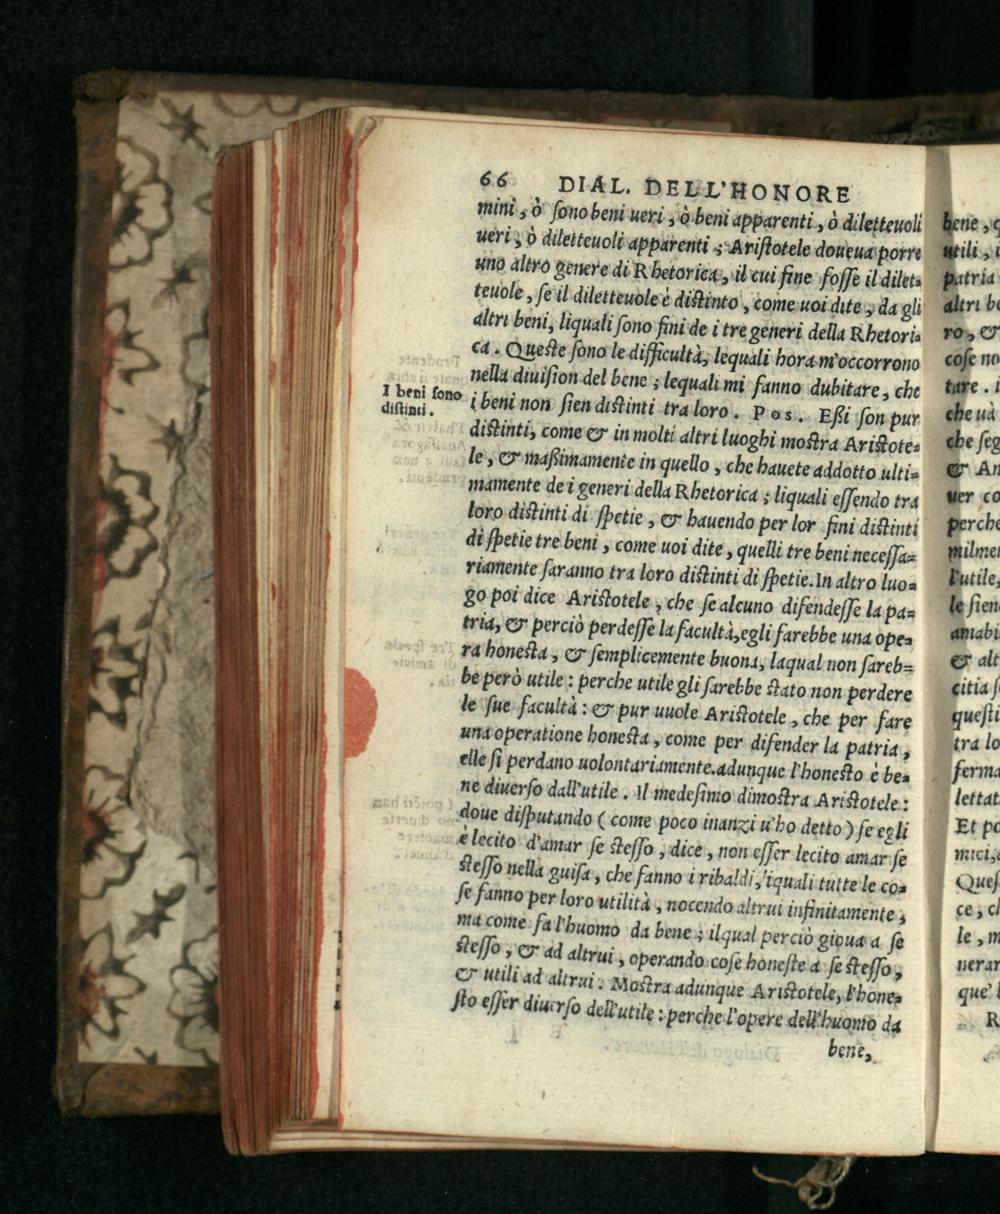 66 DIAL. DELL'HONORE
mini, ò sono beni ueri, ò beni apparenti, ò diletteuoli
ueri, ò diletteuoli apparenti; Aristotele doueua porre
uno altro genere di Rhetorica, il cui fine fosse il dilet-
teuole, se il diletteuole è distinto, come uoi dite, da gli
altri beni, liquali sono fini de i tre generi della Rhetori-
ca. Queste sono le difficultà, lequali hora m'occorrono
nella diuision del bene; lequali mi fanno dubitare, che
i beni non sien distinti tra loro. Pos. Eßi son pur
I beni sono
distinti.
distinti, come & in molti altri luoghi mostra Aristote-
le, & maßimamente in quello, che hauete addotto ulti-
mamente de i generi della Rhetorica; liquali essendo tra
loro distinti di spetie, & hauendo per lor fini distinti
di spetie tre beni, come uoi dite, quelli tre beni necessa-
riamente saranno tra loro distinti di spetie. In altro luo-
go poi dice Aristotele, che se alcuno difendesse la pa-
tria, & perciò perdesse la facultà, egli farebbe una ope-
ra honesta, & semplicemente buona, laqual non sareb-
be però utile: perche utile gli sarebbe stato non perdere
le sue facultà: & pur uuole Aristotele, che per fare
una operatione honesta, come per difender la patria,
elle si perdano uolontariamente. adunque l'honesto è be-
ne diuerso dall'utile. Il medesimo dimostra Aristotele:
doue disputando (come poco inanzi u'ho detto) se egli
è lecito d'amar se stesso, dice, non esser lecito amar se
stesso nella guisa, che fanno i ribaldi, iquali tutte le co-
se fanno per loro utilità, nocendo altrui infinitamente,
ma come fa l'huomo da bene; ilqual perciò gioua a se
stesso, & ad altrui, operando cose honeste a se stesso,
& utili ad altrui. Mostra adunque Aristotele, l'hone-
sto esser diuerso dell'utile: perche l'opere dell'huomo da
bene,
bene, q
utili,
patria
altri be
ro, &
cose no
tare.
che uà
che seg
& An
uer co
perche
milmen
l'utile,
le sien
amabi
& alt
citia s
questi
tra lo
ferma
lettat
Et po
mici,
Ques
ce, c
le, m
nerar
que' l
R